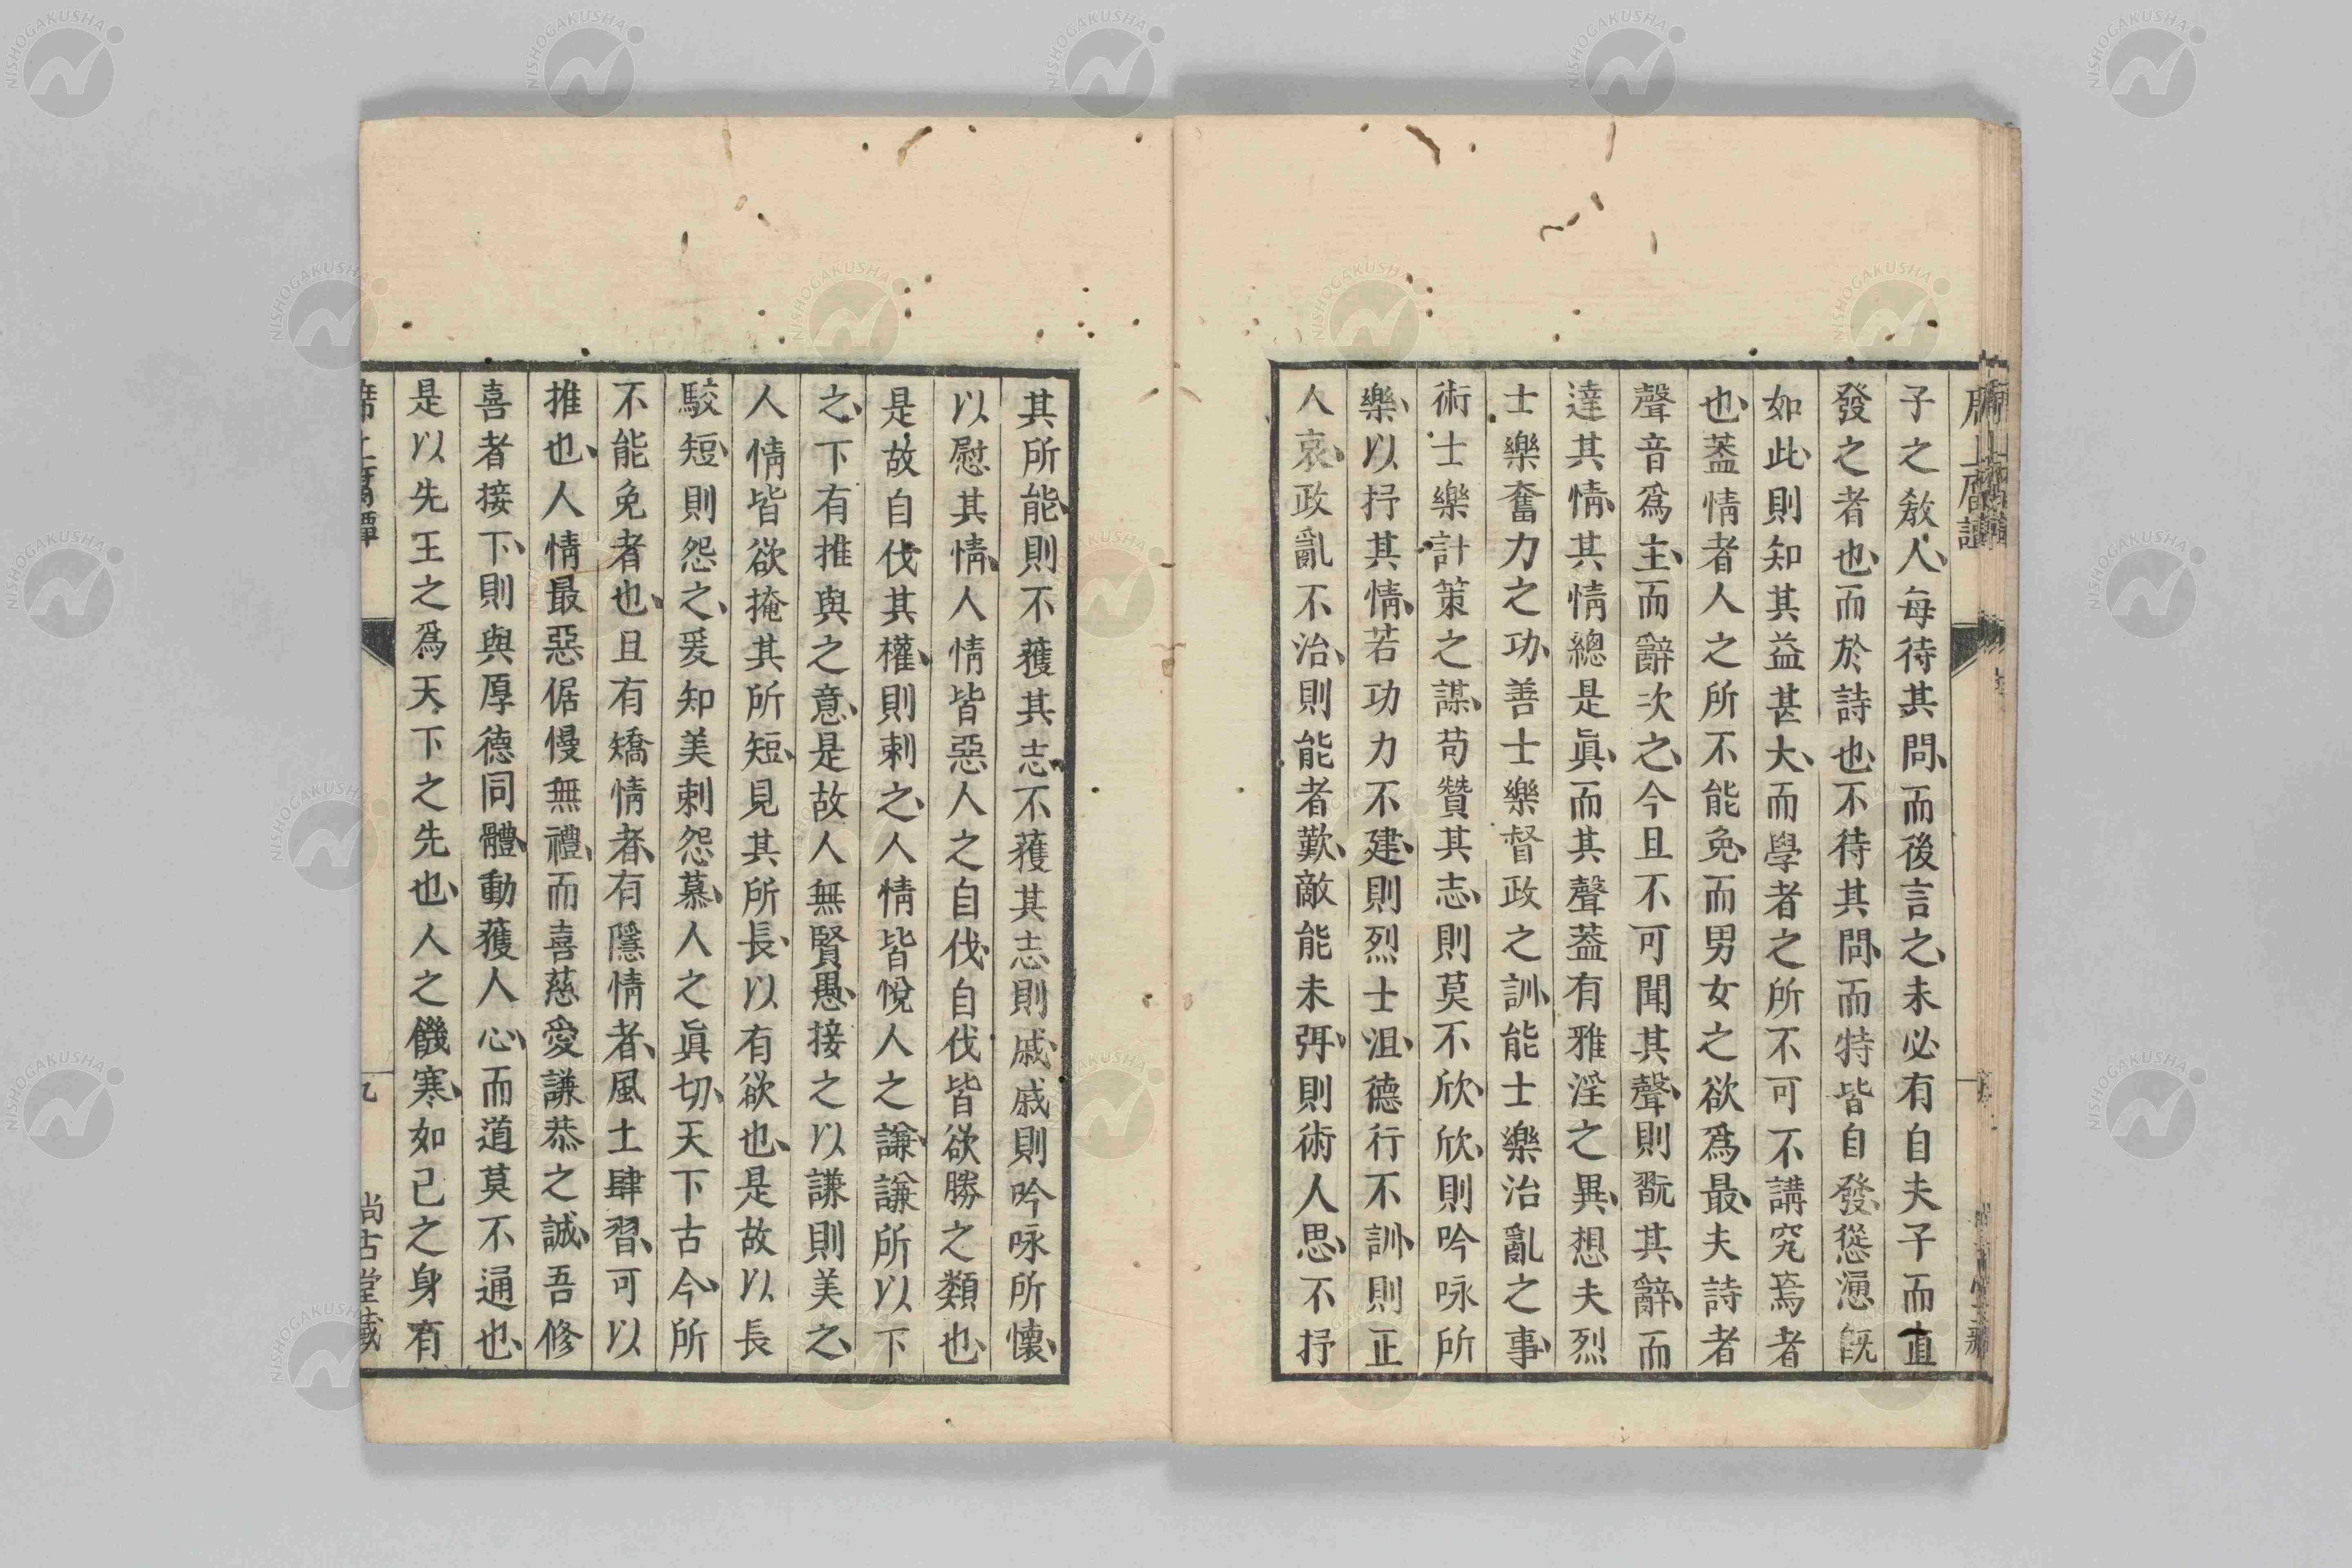 子之敎人、每待其問、而後言之、未必有自夫子而直
發之者也、而於詩也、不待其問、而特皆自發、慫慂旣
如此、則知其益甚大、而學者之所不可不講究焉者
也、葢情者人之所不能免、而男女之欲爲最、夫詩者
聲音爲主、而辭次之、今且不可聞其聲、則翫其辭、而
達其情、其情總是眞、而其聲葢有雅淫之異、想夫烈
士樂奮力之功、善士樂督政之訓、能士樂治亂之事、
術士樂計策之謀、苟贊其志、則莫不欣、欣則吟咏所
樂、以抒其情、若功力不建、則烈士沮、德行不訓、則正
人哀、政亂不治、則能者歎、敵能未弭、則術人思、不抒
其所能、則不蓷其志、不蓷其志則戚、戚則吟咏所懷、
以慰其情、人情皆惡人之自伐、自伐皆欲勝之類也、
是故自伐其權、則刺之、人情皆悅人之謙、謙所以下
之、下有推與之意、是故人無賢愚、接之以謙則美之、
人情皆欲掩其所短、見其所長、以有欲也、是故以長
駮短、則怨之、爰知美刺怨慕、人之眞切、天下古今、所
不能免者也、且有矯情者、有隱情者、風土肆習、可以
推也、人情最惡倨慢無禮、而喜慈愛謙恭之誠、吾修
喜者接下、則與厚德同體、動獲人心、而道莫不通也、
是以先王之爲天下之先也、人之饑寒、如己之身有
九
尚古堂藏
NISHOGAKUSHA